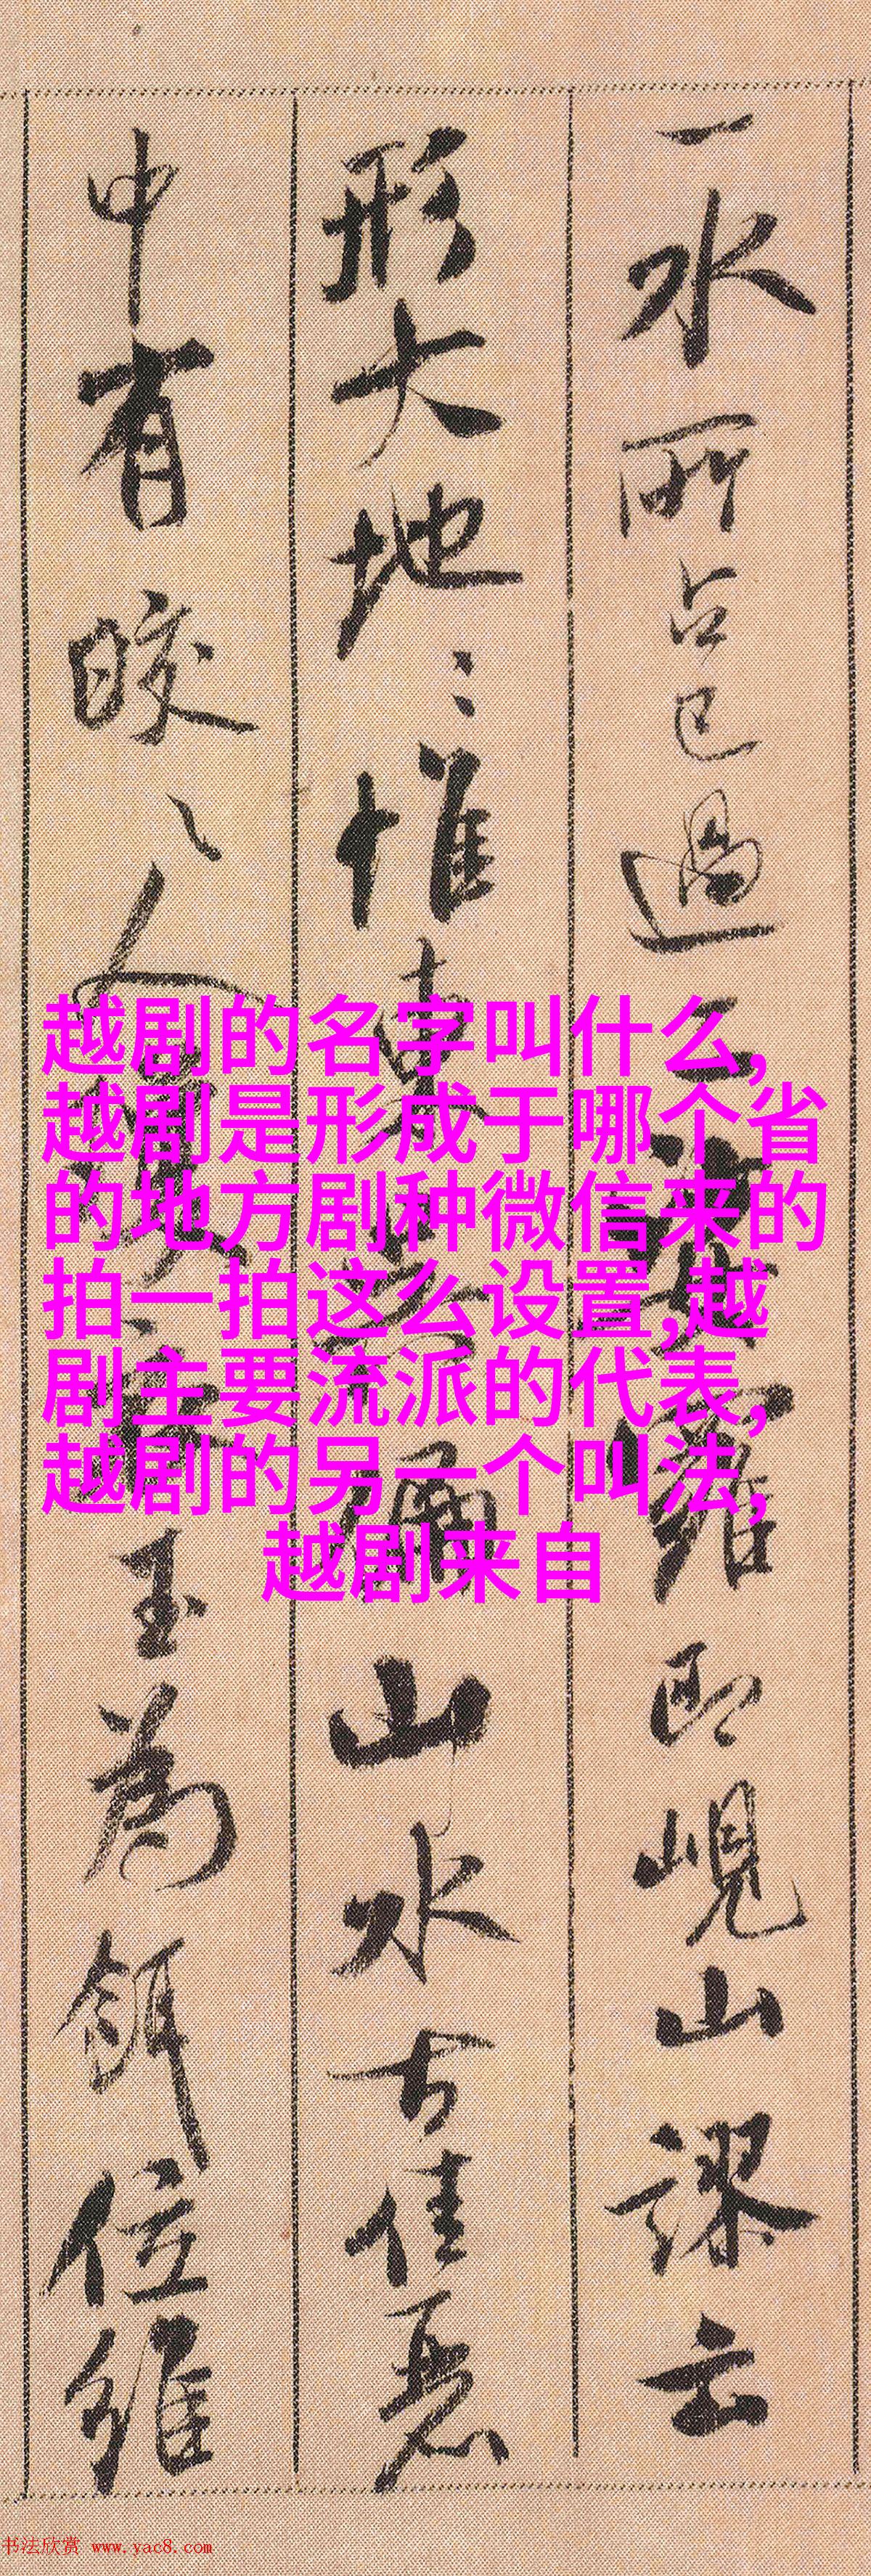 一水所占已過
即峴山謬云
形大地〻惟
山水古佳惡
中有皎〻人
玉為餌位維
越剧的名字叫什么,
越剧是形成于哪个省
的地方剧种微信来的
拍一拍这么设置,越
剧主要流派的代表,
越剧的另一个叫法,
越剧来自
书法欣赏 www.yac8.com